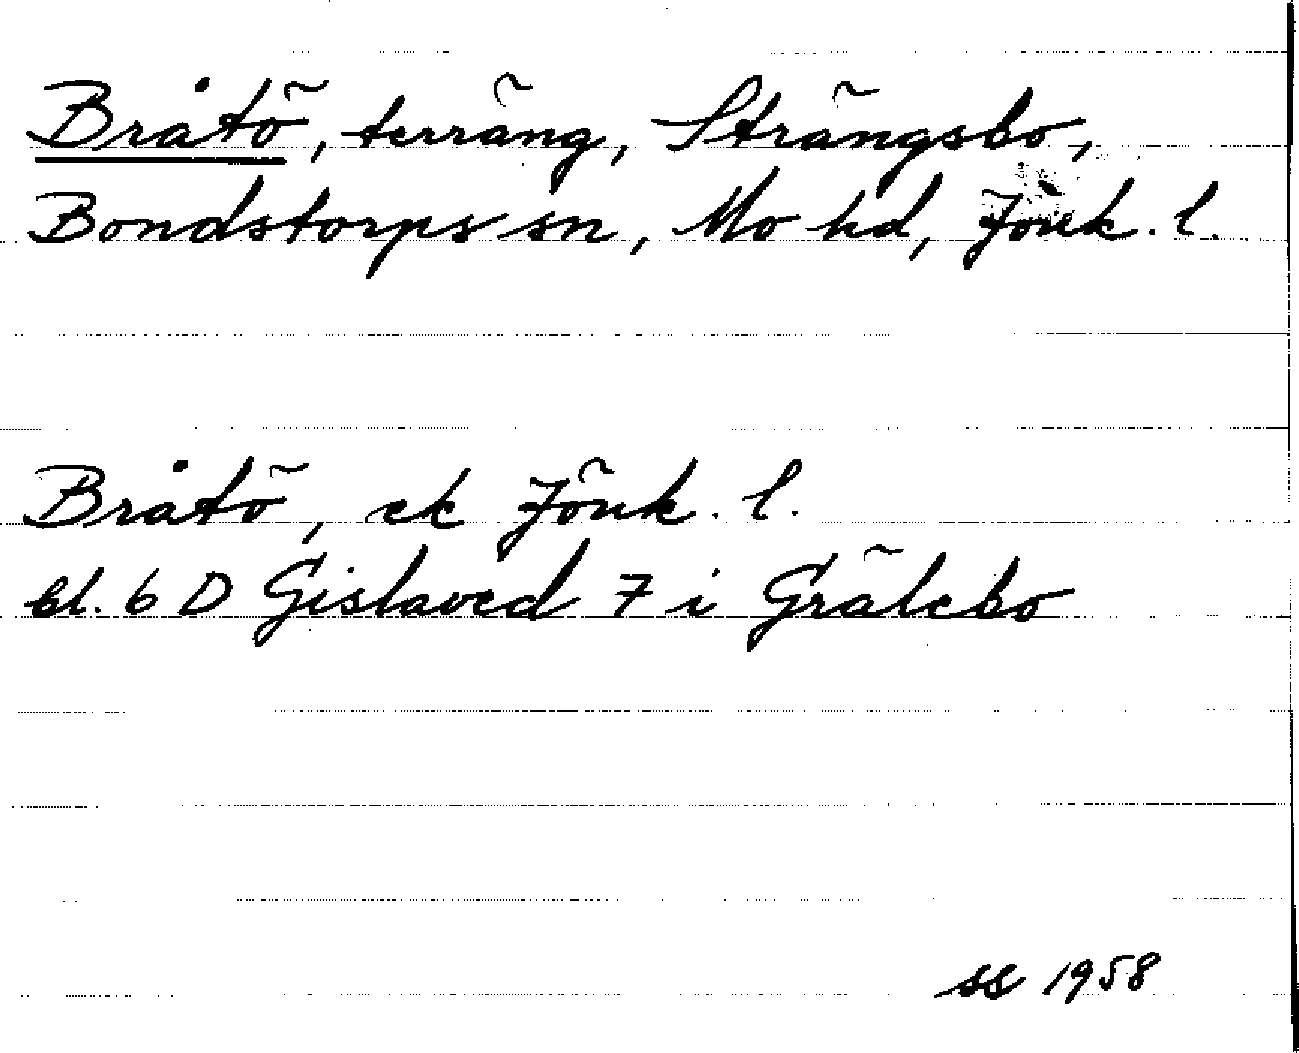 Bråtö, terräng, Strängsbo,
Bondstorps sn, Mo hd, Jönk. l.
Bråtö, ek Jönk. l.
bl. 6 D Gislaved 7 i Grälebo
SS 1958